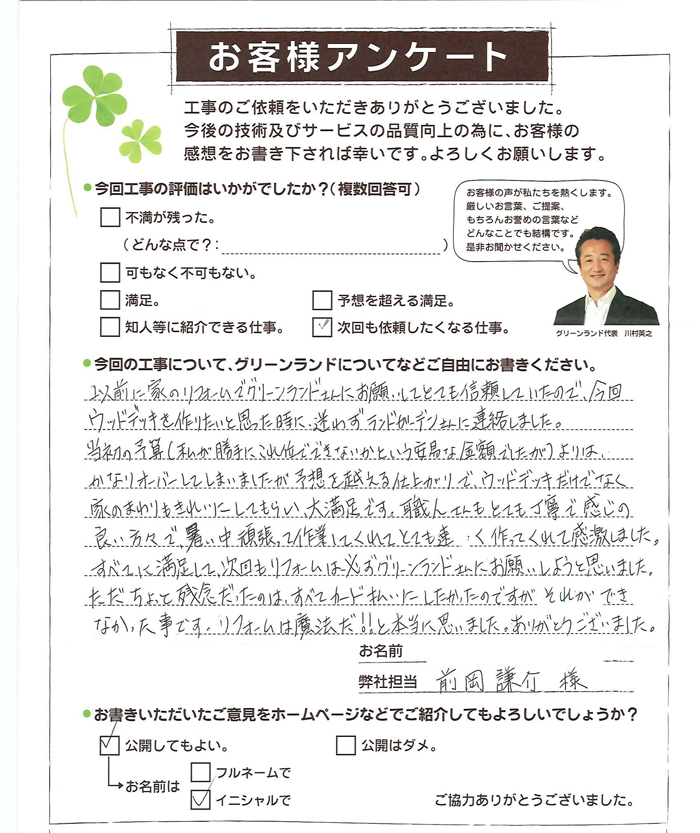 お客様アンケート
工事のご依頼をいただきありがとうございました。
今後の技術及びサービスの品質向上の為に、お客様の
感想をお書き下されば幸いです。よろしくお願いします。
●今回工事の評価はいかがでしたか?(複数回答可)
不満が残った。
(どんな点で?: )
可もなく不可もない。
満足。
予想を超える満足。
知人等に紹介できる仕事。
✓ 次回も依頼したくなる仕事。
お客様の声が私たちを熱くします。
厳しいお言葉、ご提案、
もちろんお誉めの言葉など
どんなことでも結構です。
是非お聞かせください。
グリーンランド代表 川村英之
●今回の工事について、グリーンランドについてなどご自由にお書きください。
以前に家のリフォームでグリーンランドさんにお願いしてとても信頼していたので、今回
ウッドデッキを作りたいと思った時に、迷わずランドガーデンさんに連絡しました。
当初の予算(私が勝手にこれ位でできないかという安易な金額でしたが)よりは、
かなりオーバーしてしまいましたが予想を越える仕上がりで、ウッドデッキだけでなく
家のまわりもきれいにしてもらい、大満足です。職人さんもとても丁寧で感じの
良い方々で、暑い中頑張って作業してくれてとても く作ってくれて感激しました。
すべてに満足して、次回もリフォームは必ずグリーンランドさんにお願いしようと思いました。
ただちょっと残念だったのは、すべてカード払いにしたかったのですが それができ
なかった事です。リフォームは魔法だ!!と本当に思いました。ありがとうございました。
お名前
弊社担当 前岡謙介 様
●お書きいただいたご意見をホームページなどでご紹介してもよろしいでしょうか?
✓ 公開してもよい。
公開はダメ。
お名前は
フルネームで
✓ イニシャルで
ご協力ありがとうございました。